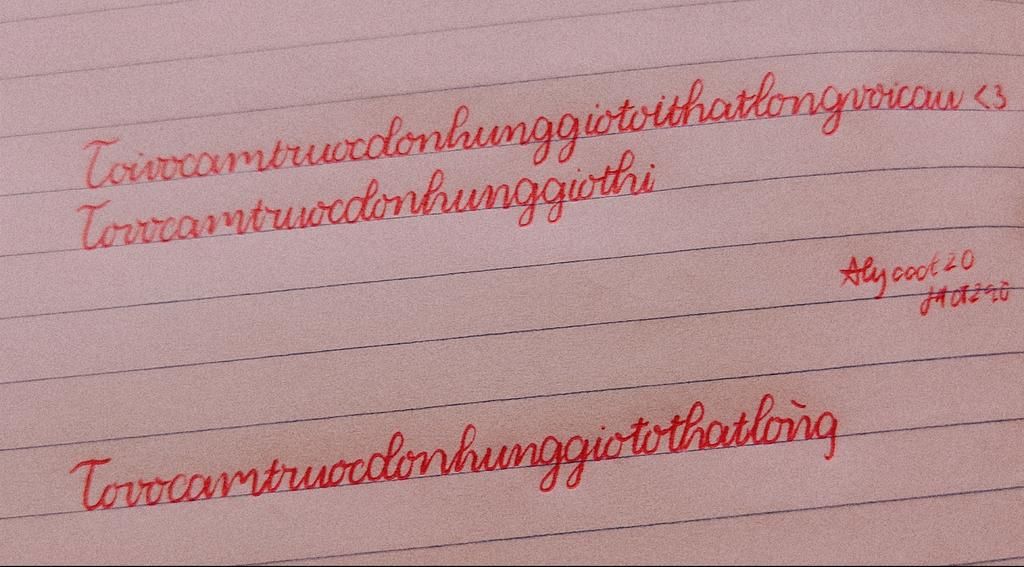 Toivocamtruocdonhunggiotoithatlongvoicau <3
Tovocamtruocdonhunggiothi
Tovocamtruocdonhunggiotothatlòng